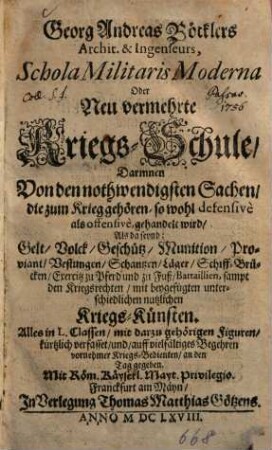 Georg Andreas Böcklers
Archit. & Ingenieurs,
Schola Militaris Moderna
Oder
Neu vermehrte
Kriegs-Schule/
Darinnen
Von den nothwendigsten Sachen/
die zum Krieg gehören/ so wohl defensivè
als offensivè, gehandelt wird/
Als da seynd:
Gelt/ Volck/ Geschütz/ Munition/ Pro-
viant/ Vestungen/ Schantzen/ Läger/ Schiff-Brü-
cken/ Exercitz zu Pferd und zu Fuß/ Battaillien/ sampt
den Kriegsrechten/ mit beygefügten unter-
schiedlichen nutzlichen
Kriegs-Künsten.
Alles in L. Classen/ mit darzu gehörigen Figuren/
kürtzlich verfasset/ und/ auff vielfältiges Begehren
vornehmer Kriegs-Bedienten/ an den
Tag gegeben.
Mit Röm. Käyserl. Mayt. privilegio.
Franckfurt am Mäyn/
In Verlegung Thomas Matthias Götzens.
ANNO M DC LXVIII.
668